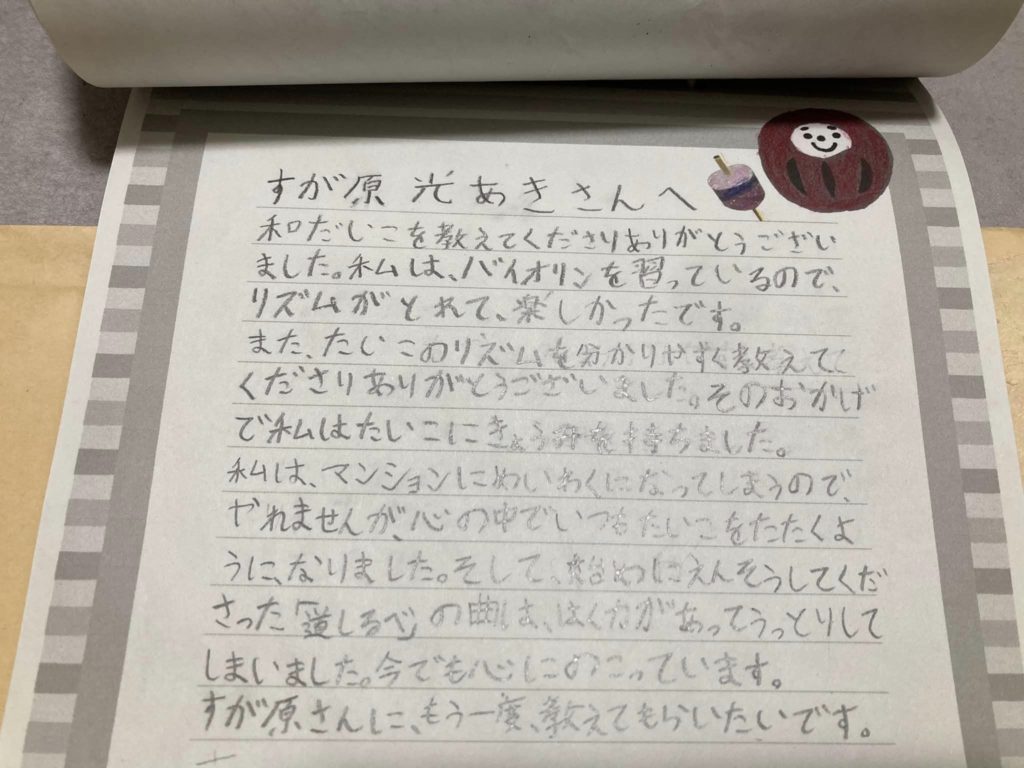 すが原 光あきさんへ
和だいこを教えてくださりありがとうござい
ました。私は、バイオリンを習っているので、
リズムがとれて、楽しかったです。
また、たいこのリズムを分かりやすく教えて
くださりありがとうございました。そのおかげ
で私はたいこにきょう味を持ちました。
私は、マンションにめいわくになってしまうので、
やれませんが、心の中でいつもたいこをたたくよ
うに、なりました。そして、始めにえんそうしてくだ
さった「道しるべ」の曲は、はく力があってうっとりして
しまいました。今でも心にのこっています。
すが原さんに、もう一度、教えてもらいたいです。